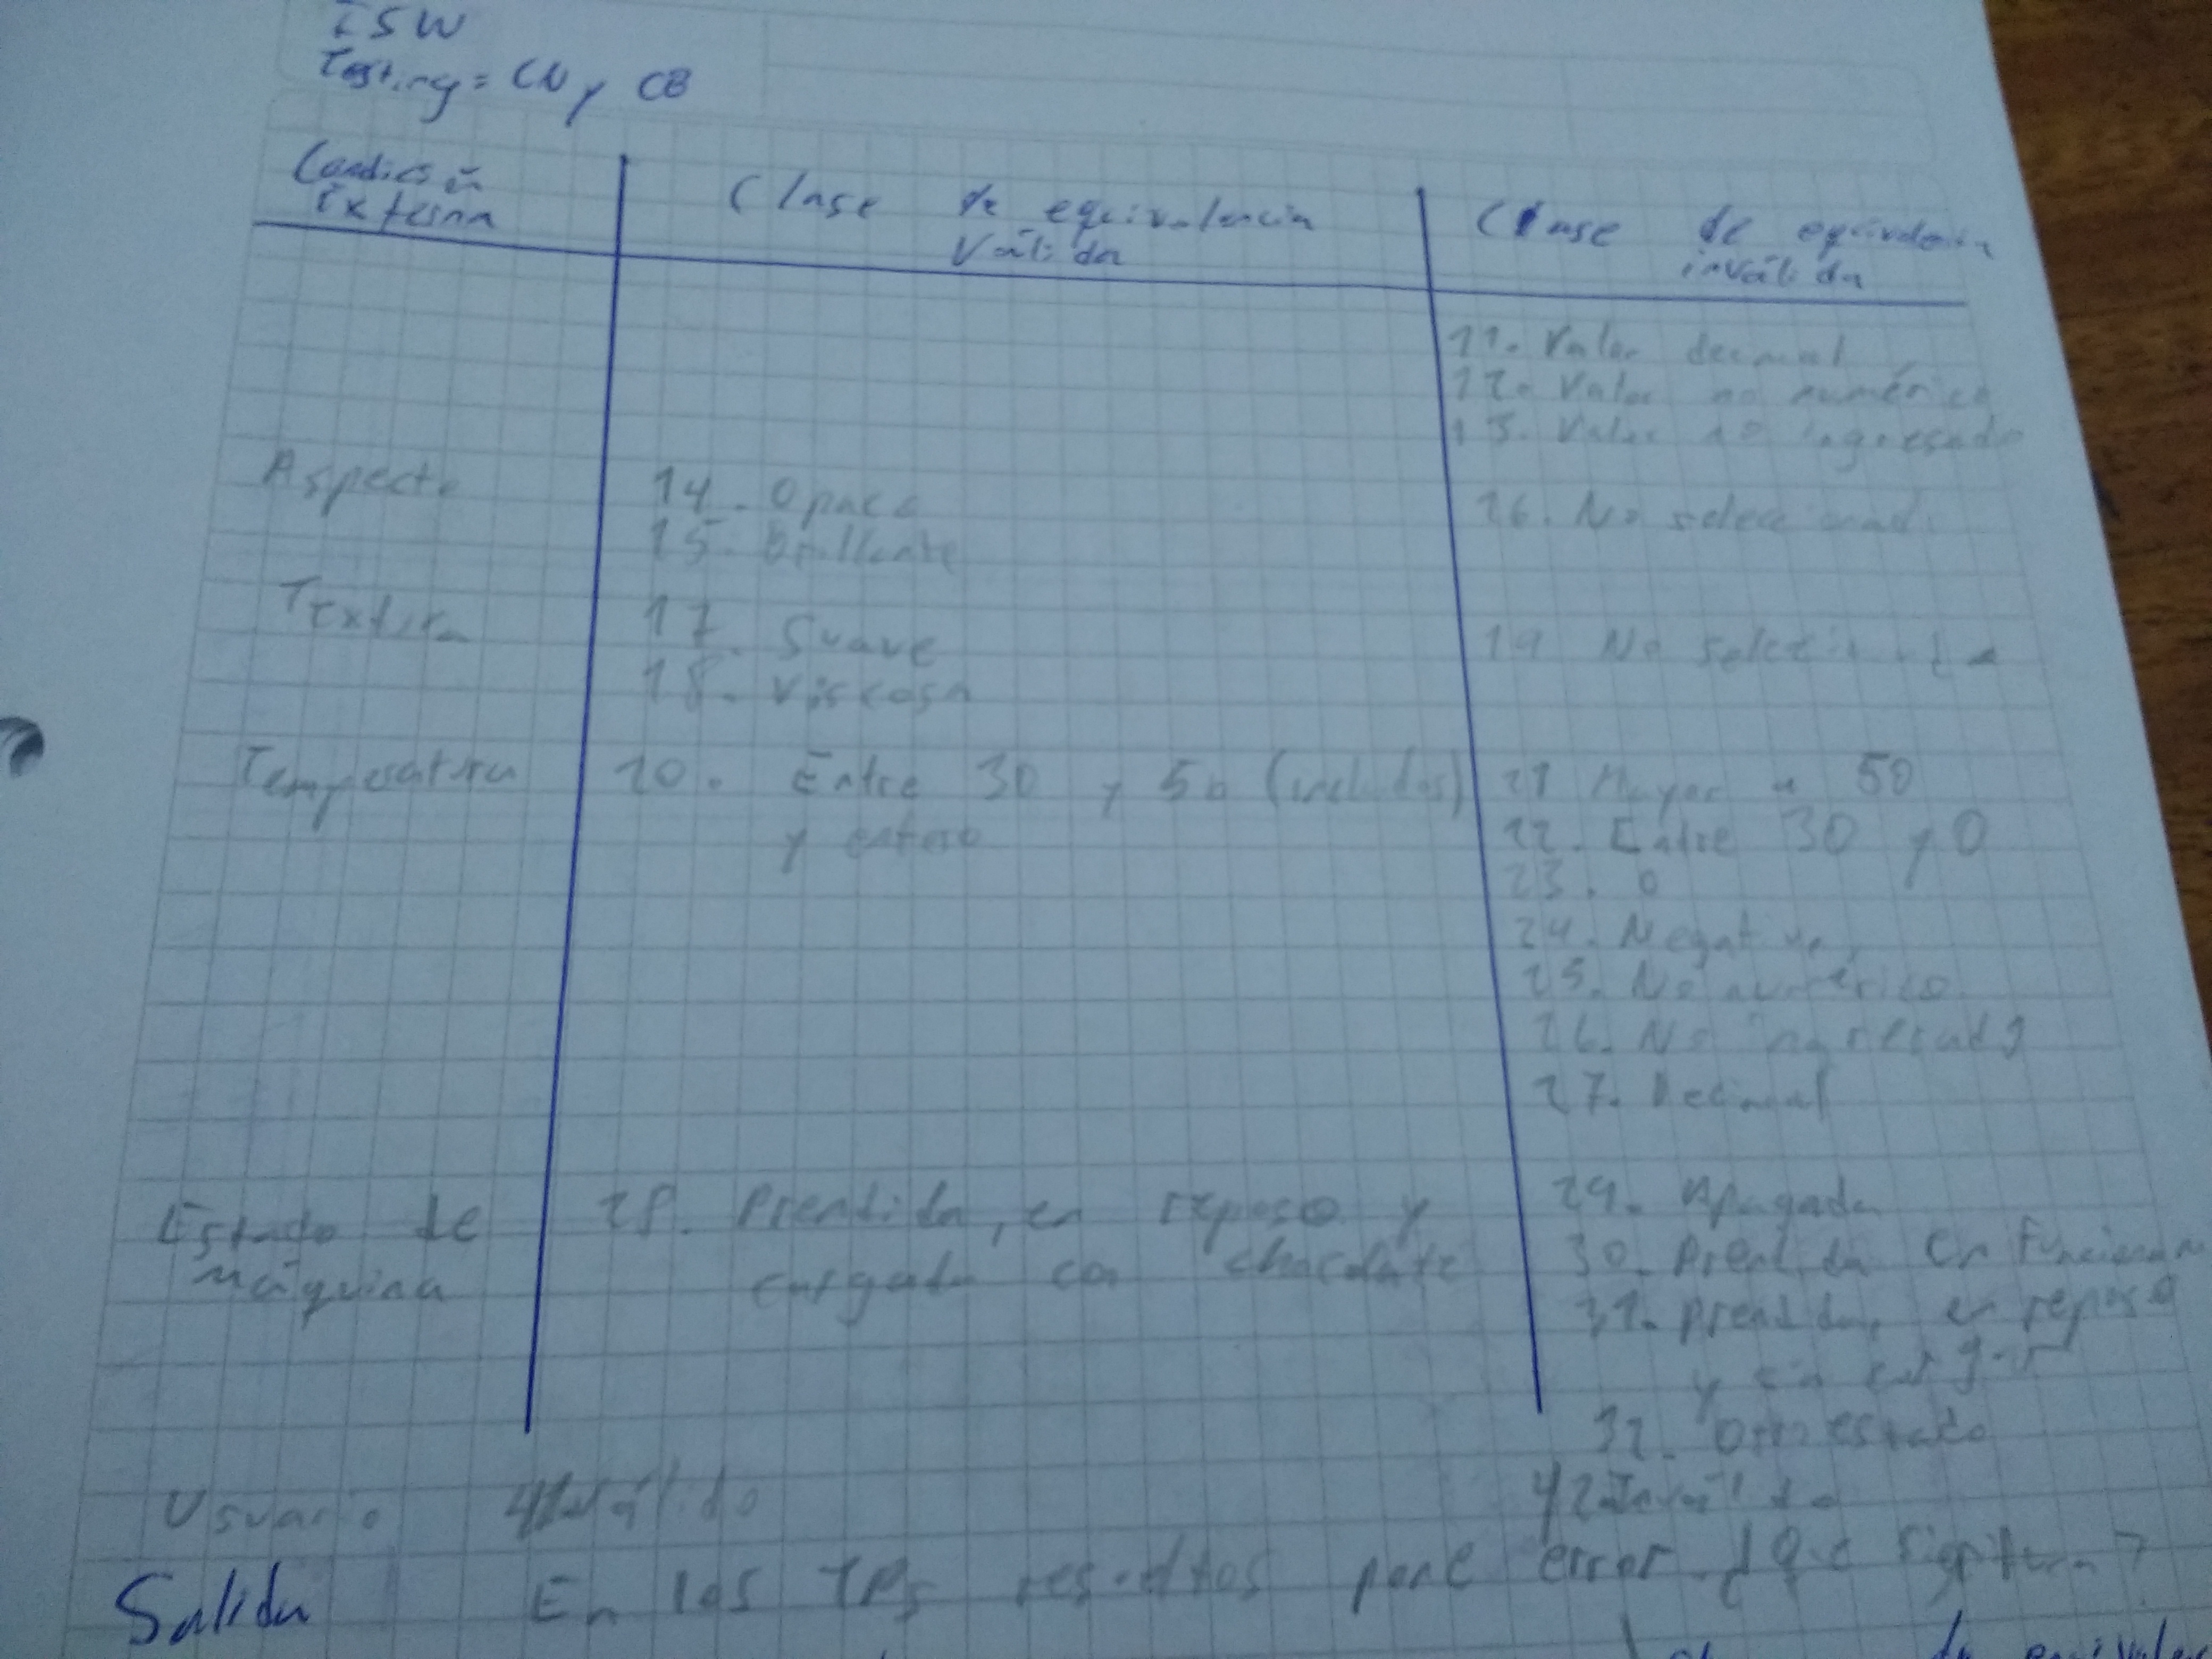 ISW
Testing: CN y CB
Condición Externa
Clase de equivalencia Válida
Clase de equivalencia inválida
11. Valor decimal
12. Valor no numérico
13. Valor no ingresado
Aspecto
14. Opaco
15. Brillante
16. No seleccionado
Textura
17. Suave
18. Viscosa
19 No
Temperatura
20. Entre 30 y 50 (incluidos)
y entero
21 Mayor a 50
22. Entre 30 y 0
23. 0
24. Negativo
25. No numérico
26. No ingresado
27. Decimal
Estado de
máquina
28. Prendida, en reposo y
cargada con chocolate
29. Apagada
30. Prendida en
31. Prendida, en reposo
y sin
32. Otro estado
Usuario
41. Válido
42. Inválido
Salida
En los TPs resueltos pone error ¿Qué significa?